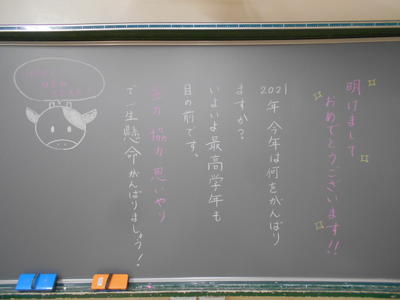 明けまして
おめでとうございます!!
2021年、今年は何をがんばり
ますか?
いよいよ最高学年も
目の前です。
全力 協力 思いやり
で一生懸命がんばりましょう!
HAPPY
NEW
YEAR